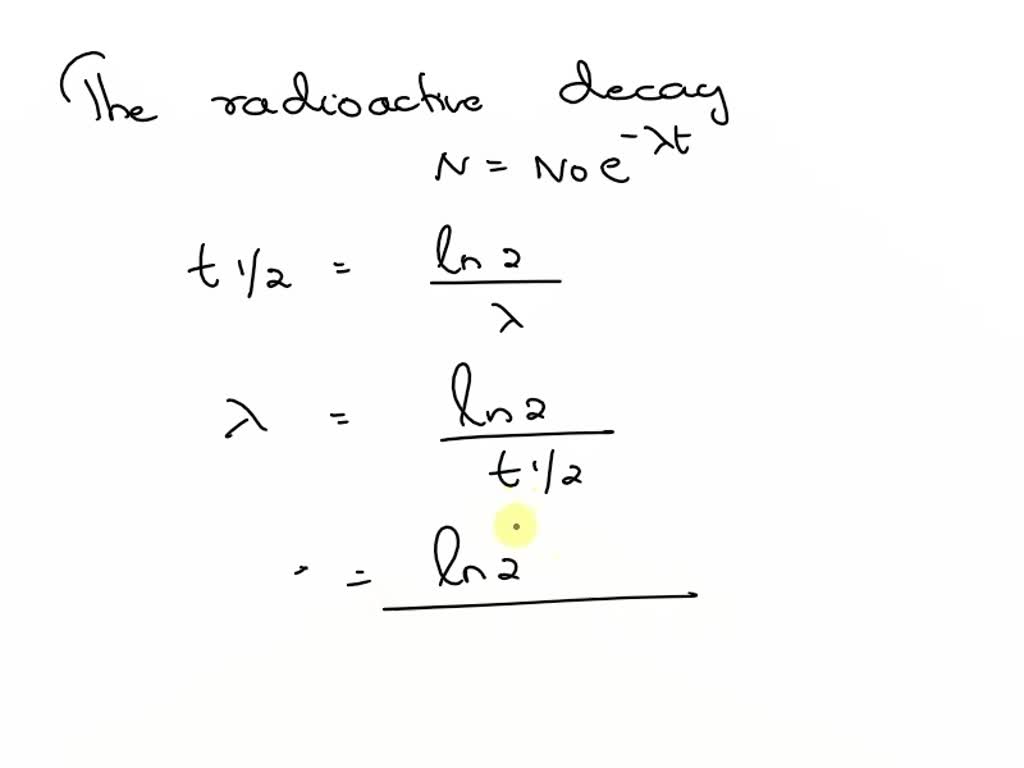 The radioactive decay
N = N0 e^-λt
t 1/2 = ln 2 / λ
λ = ln 2 / t 1/2
= ln 2